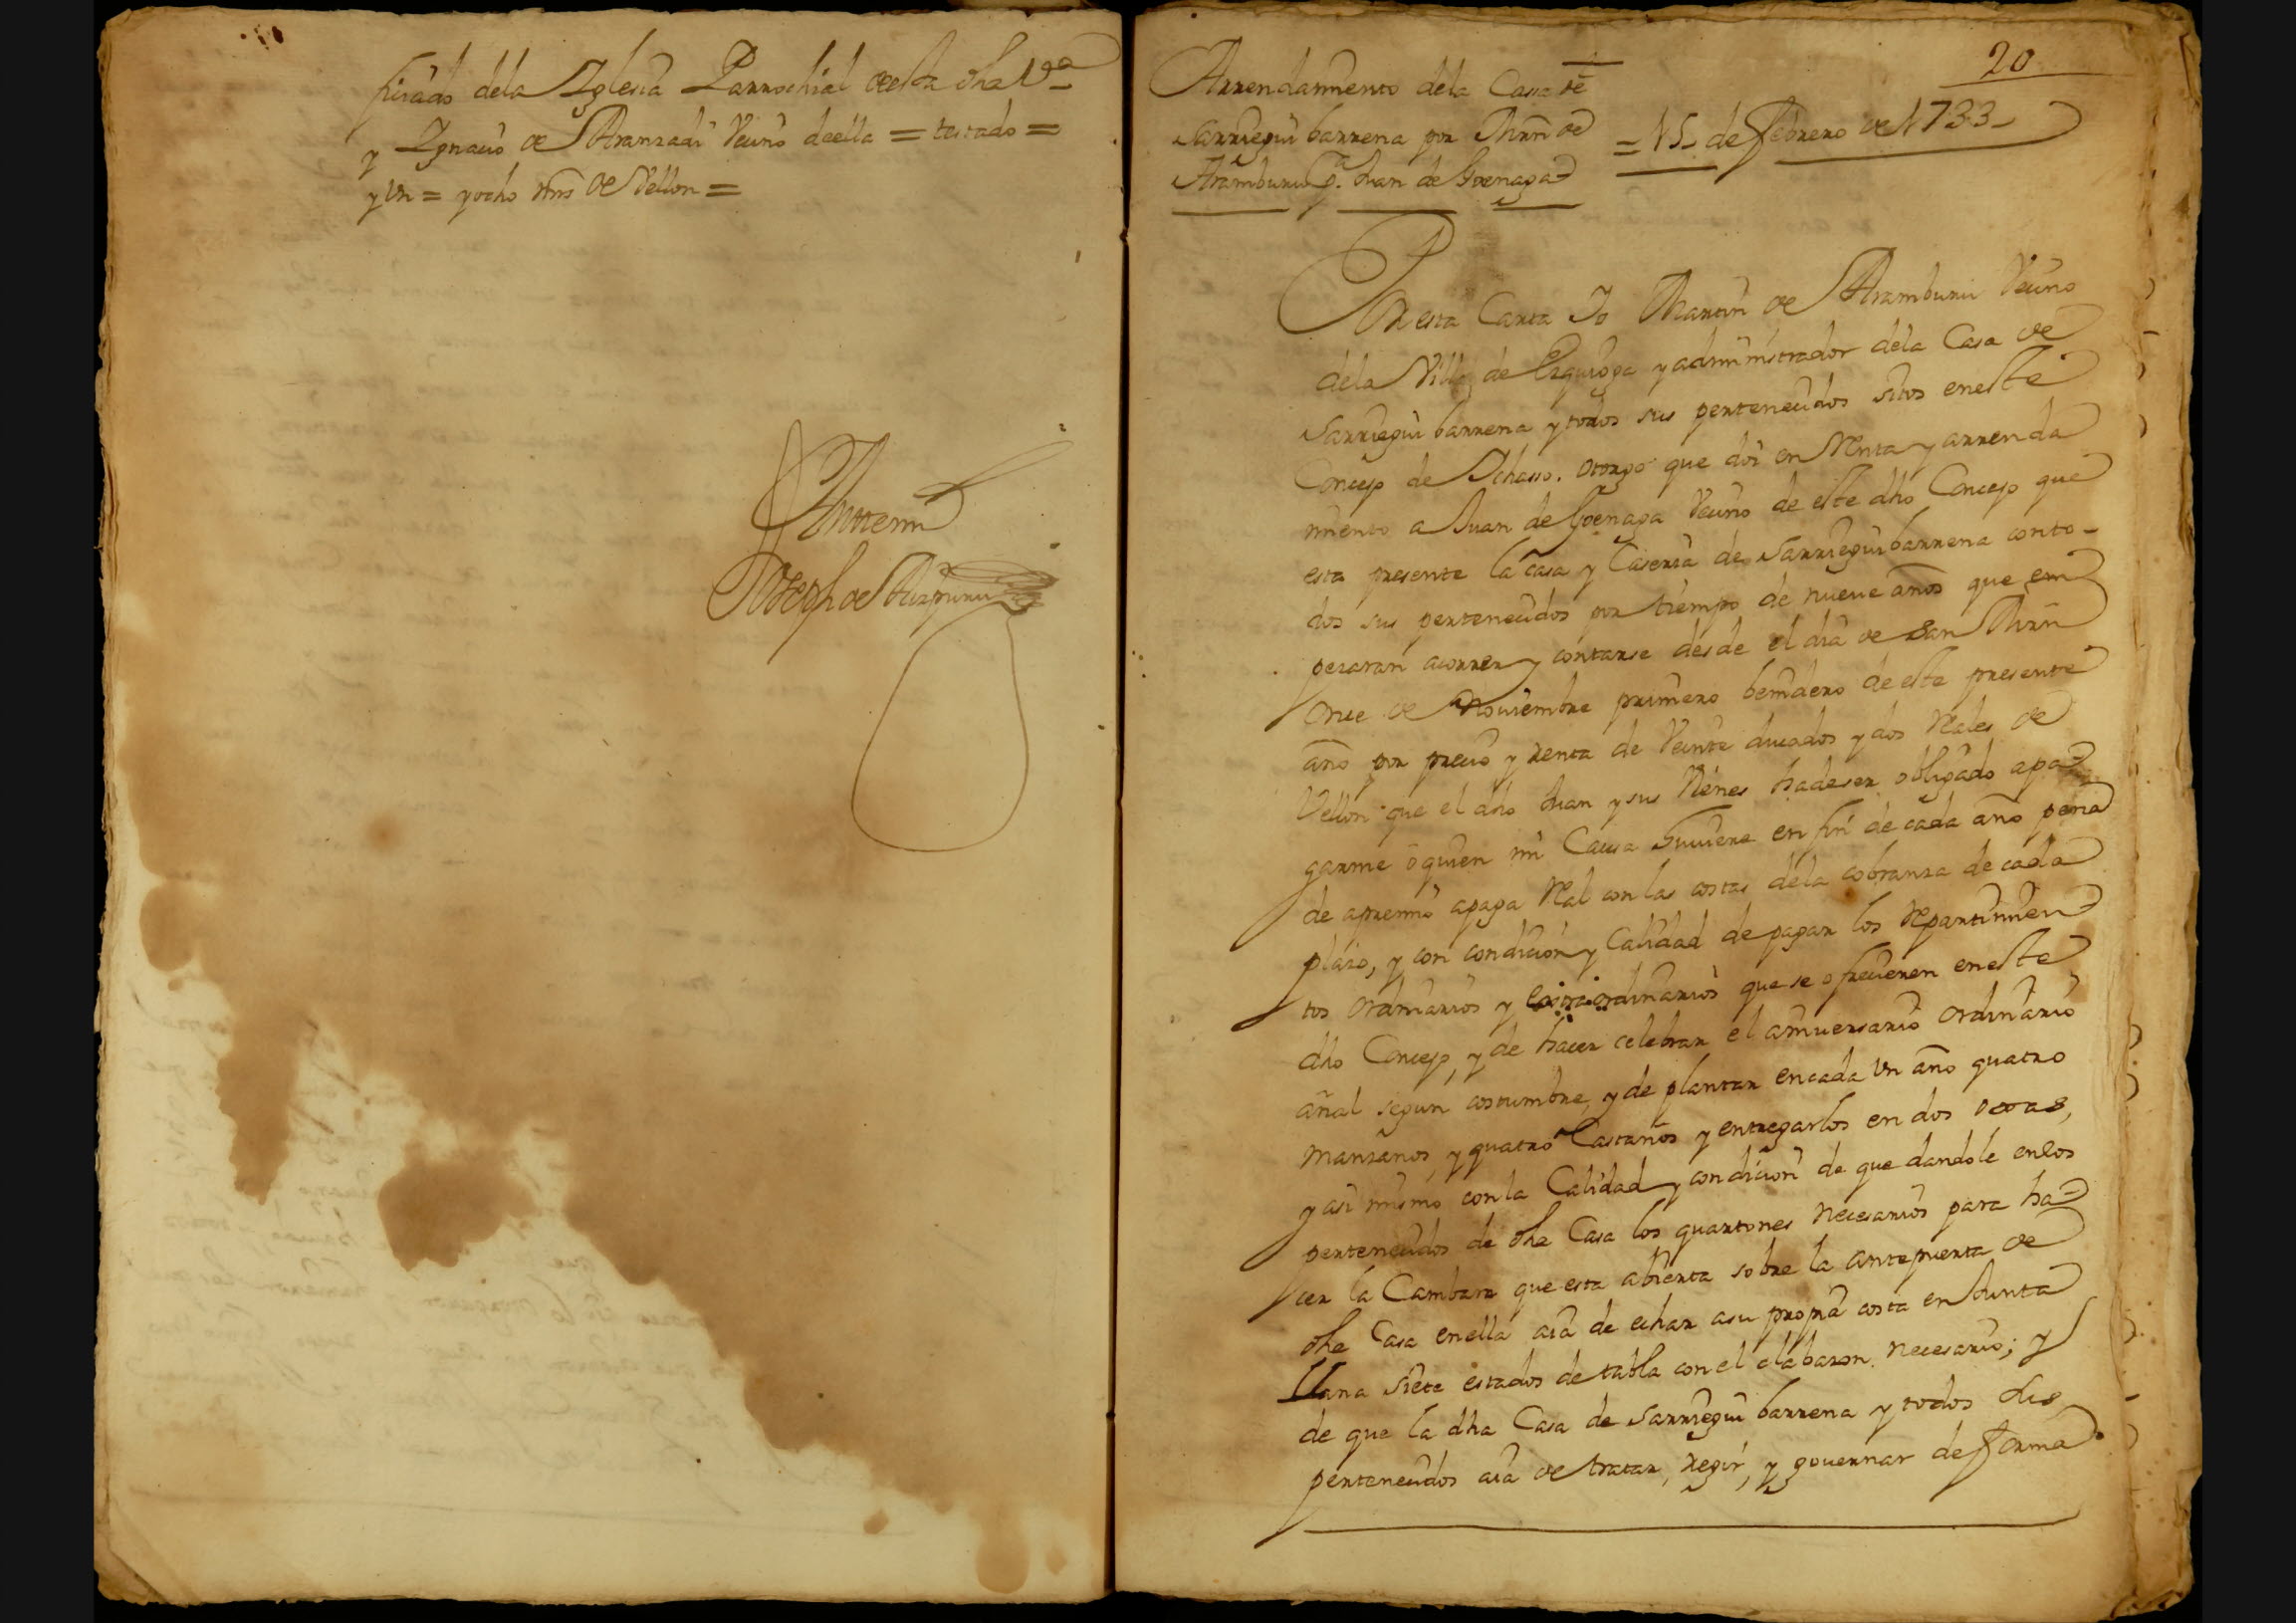 ficiado dela Iglesia Parrochial de esta dha Vª
y Ignacio de Aranzadi Vecino de ella = testado =
y Un = y ocho mrs de Vellon =
Antte mi
Joseph de Aizpuru
20
Arrendamiento dela Casa de
Sarriegui barrena por Mrn de
Aramburu pª Juan de Goenaga
= 15 de febrero de 1733
Por esta Carta Yo Martin de Aramburu Vecino
dela Villa de Ezquioga y administrador dela Casa de
Sarriegui barrena y todos sus pertenecidos sitos en este
Concejo de Ichasso. otorgo que doi en Renta y arrenda
miento a Juan de Goenaga Vecino de este dho Concejo que
esta presente la casa y Caseria de Sarriegui barrena con to-
dos sus pertenecidos por tiempo de nueve años que em
pezaran a correr y contarse desde el dia de San Mrn
once de Noviembre primero benidero de este presente
año por precio y renta de Veinte ducados y dos Reales de
Vellon que el dho Juan y sus Vienes ha de ser obligado a pa
garme o quien mi Causa huviere en fin de cada año pena
de apremio a paga Real con las costas dela cobranza de cada
plazo, y con condicion y Calidad de pagar los Repartimien
tos ordinarios y extraordinarios que se ofrecieren en este
dho Concejo, y de hacer celebrar el anniversario ordinario
añal segun costumbre, y de plantar en cada Un año quatro
manzanos, y quatro Castaños y entregarlos en dos ojas,
y asi mismo con la Calidad y condicion de que dandole en los
pertenecidos de dha Casa los quartones necesarios para ha
cer la Cambara que esta abierta sobre la antepuerta de
dha Casa en ella aia de echar a su propia costa en Junta
llana siete estados de tabla con el clabazon necesario; y
de que la dha Casa de Sarriegui barrena y todos sus
pertenecidos aia de tratar, regir, y governar de forma